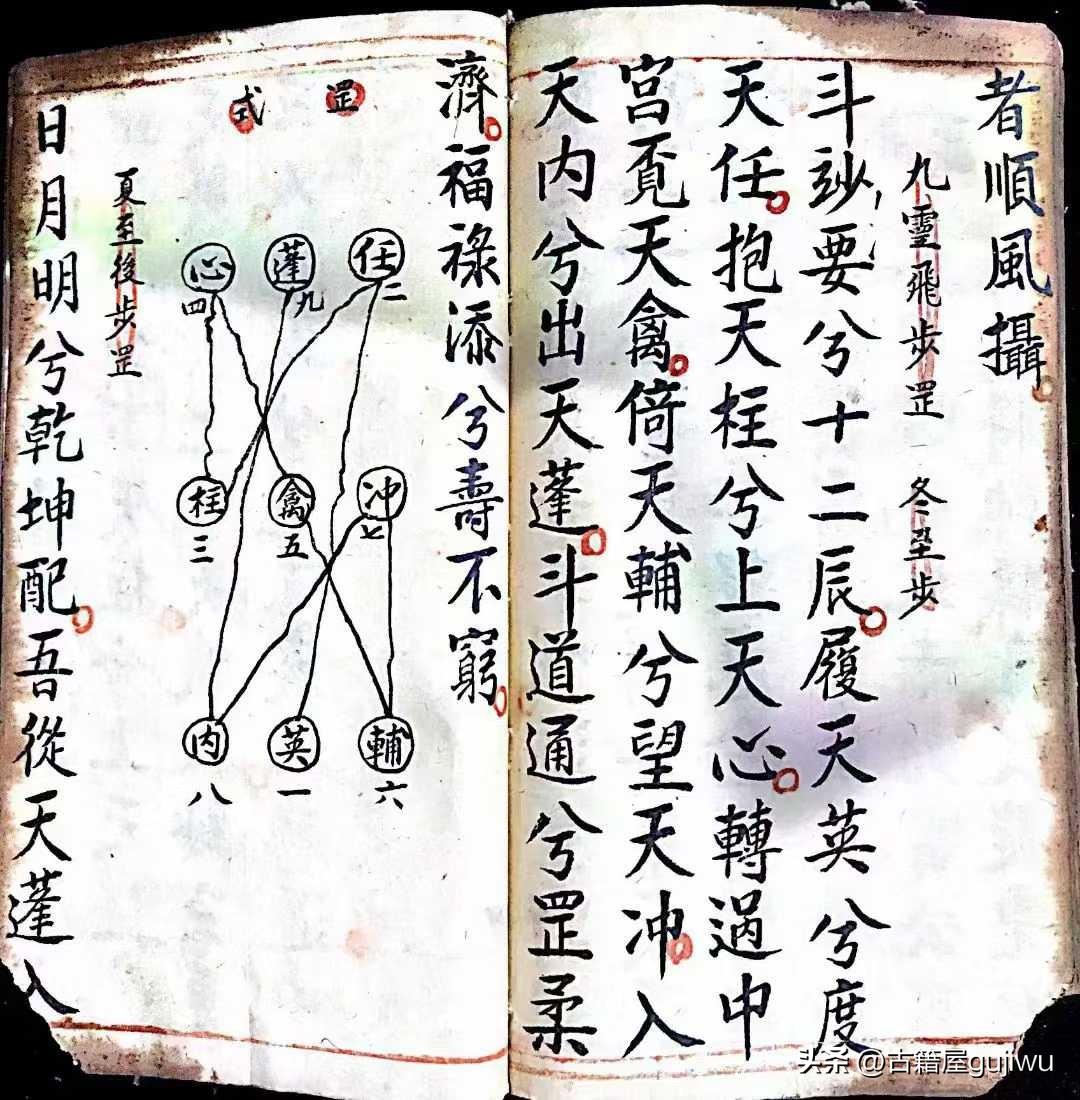 者順風攝。
九靈飛步罡 冬至步
斗玅要兮十二辰。履天英兮度
天任。抱天柱兮上天心。轉過中
宮覔天禽。倚天輔兮望天冲。入
天内兮出天蓬。斗道通兮罡柔
濟。福祿添兮壽不窮。
罡式
任 二
蓬 九
心 四
冲 七
禽 五
柱 三
輔 六
英 一
内 八
夏至後步罡
日月明兮乾坤配。吾從天蓬入
头条 @古籍屋gujiwu